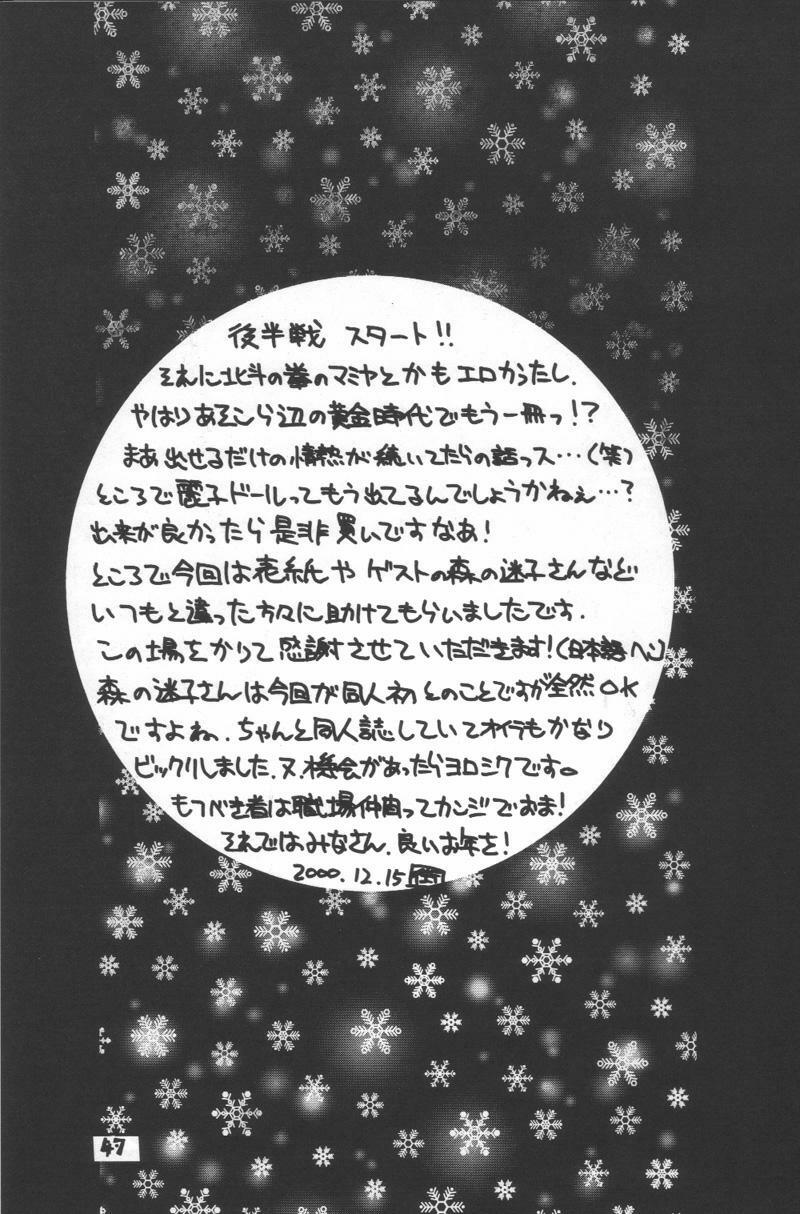 後半戦 スタート!!
それに北斗の拳のマミヤとかもエロかったし、
やはりあそこら辺の黄金時代でもう一冊っ!?
まあ出せるだけの情熱が続いてたらの話っス…(笑)
ところで麗子ドールってもう出てるんでしょうかねぇ…?
出来が良かったら是非買いですなあ!
ところで今回は表紙や ゲストの森の迷子さんなど
いつもと違った方々に助けてもらいましたです.
この場をかりて感謝させていただきます!(日本語ヘン)
森の迷子さんは今回が同人初とのことですが全然OK
ですよね、ちゃんと同人誌していてオイラもかなり
ビックリしました、又、機会があったらヨロシクです。
もつべき者は職場仲間ってカンジでおま!
それではみなさん、良いお年を!
2000.12.15
47